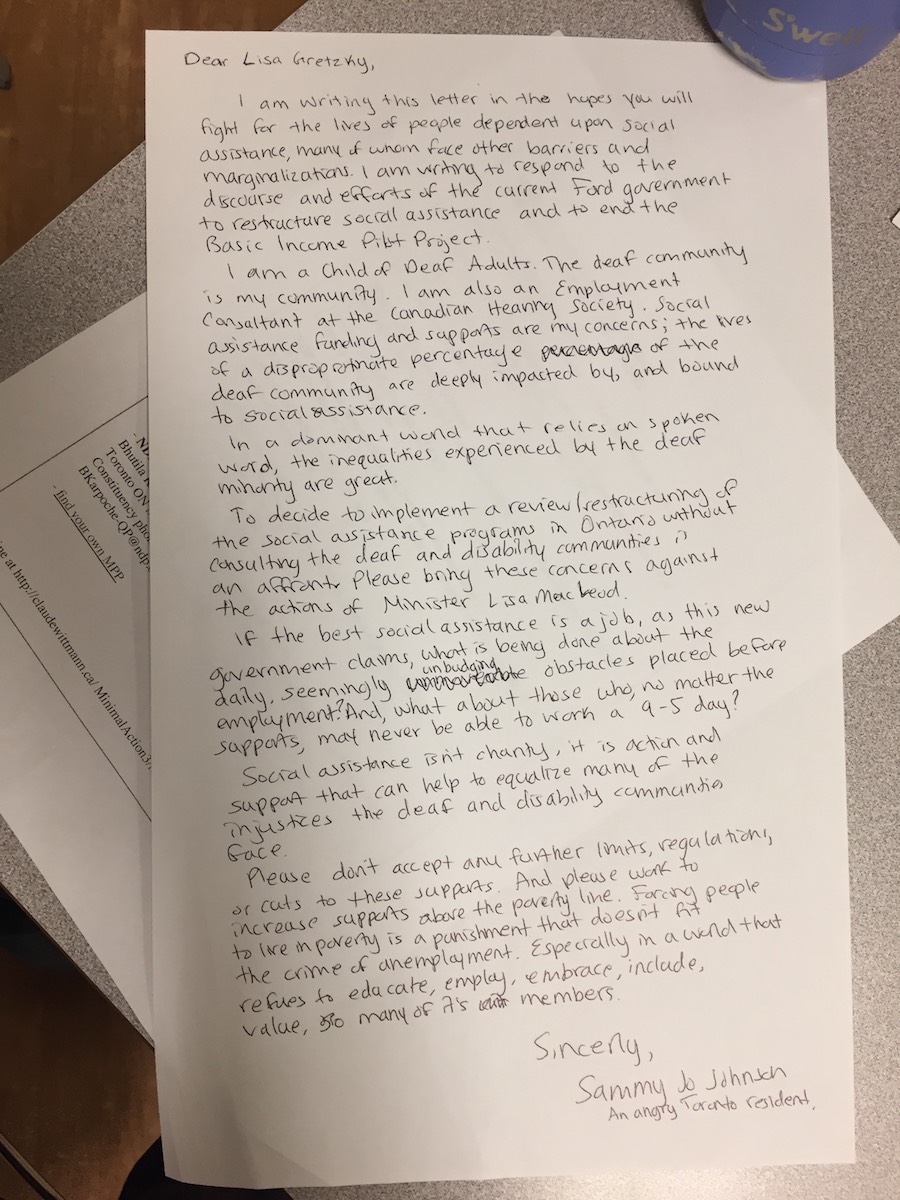 S'well
Dear Lisa Gretzky,
I am writing this letter in the hopes you will
fight for the lives of people dependent upon social
assistance, many of whom face other barriers and
marginalizations. I am writing to respond to the
discourse and efforts of the current Ford government
to restructure social assistance and to end the
Basic Income Pilot Project.
I am a Child of Deaf Adults. The deaf community
is my community. I am also an Employment
Consultant at the Canadian Hearing Society. Social
assistance funding and supports are my concerns; the lives
of a disproportinate percentage percentage of the
deaf community are deeply impacted by, and bound
to social assistance.
In a dominant world that relies on spoken
word, the inequalities experienced by the deaf
minority are great.
To decide to implement a review/restructuring of
the social assistance programs in Ontario without
consulting the deaf and disability communities is
an affront. Please bring these concerns against
the actions of Minister Lisa MacLeod.
If the best social assistance is a job, as this new
government claims, what is being done about the
daily, seemingly unbudging obstacles placed before
employment? And, what about those who, no matter the
supports, may never be able to work a 9-5 day?
Social assistance isn't charity, it is action and
support that can help to equalize many of the
injustices the deaf and disability communities
face.
Please don't accept any further limits, regulations,
or cuts to these supports. And please work to
increase supports above the poverty line. Forcing people
to live in poverty is a punishment that doesn't fit
the crime of unemployment. Especially in a world that
refues to educate, employ, embrace, include,
value, so many of it's members.
Sincerly,
Sammy Jo Johnson
An angry Toronto resident.
Bhutila
Toronto ON
Constituency pho
BKarpoche-QP@ndp.
- find your own MPP
ne at http://claudewittmann.ca/ MinimalAction3/